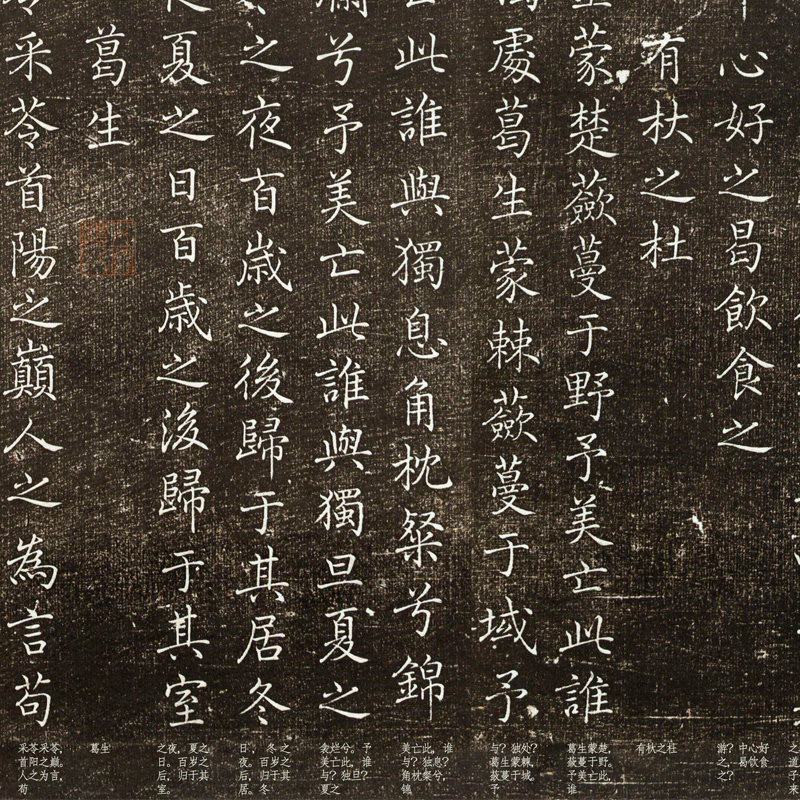 心好之曷飲食之
有杕之杜
蒙楚蘞蔓于野予美亡此誰
處葛生蒙棘蘞蔓于域予
此誰與獨息角枕粲兮錦
兮予美亡此誰與獨旦夏之
之夜百歲之後歸于其居冬
夏之日百歲之後歸于其室
葛生
采苓首陽之巔人之為言苟
游？中心好
之，曷饮食
之？
有杕之杜
葛生蒙楚，
蔹蔓于野。
予美亡此，
谁
与？独处？
葛生蒙棘，
蔹蔓于域。
予
美亡此，谁
与？独息？
角枕粲兮，
锦
衾烂兮。予
美亡此，谁
与？独旦？
夏之
日，冬之
夜。百岁之
后，归于其
居。冬
之夜，夏之
日。百岁之
后，归于其
室。
葛生
采苓采苓，
首阳之巅。
人之为言，
苟